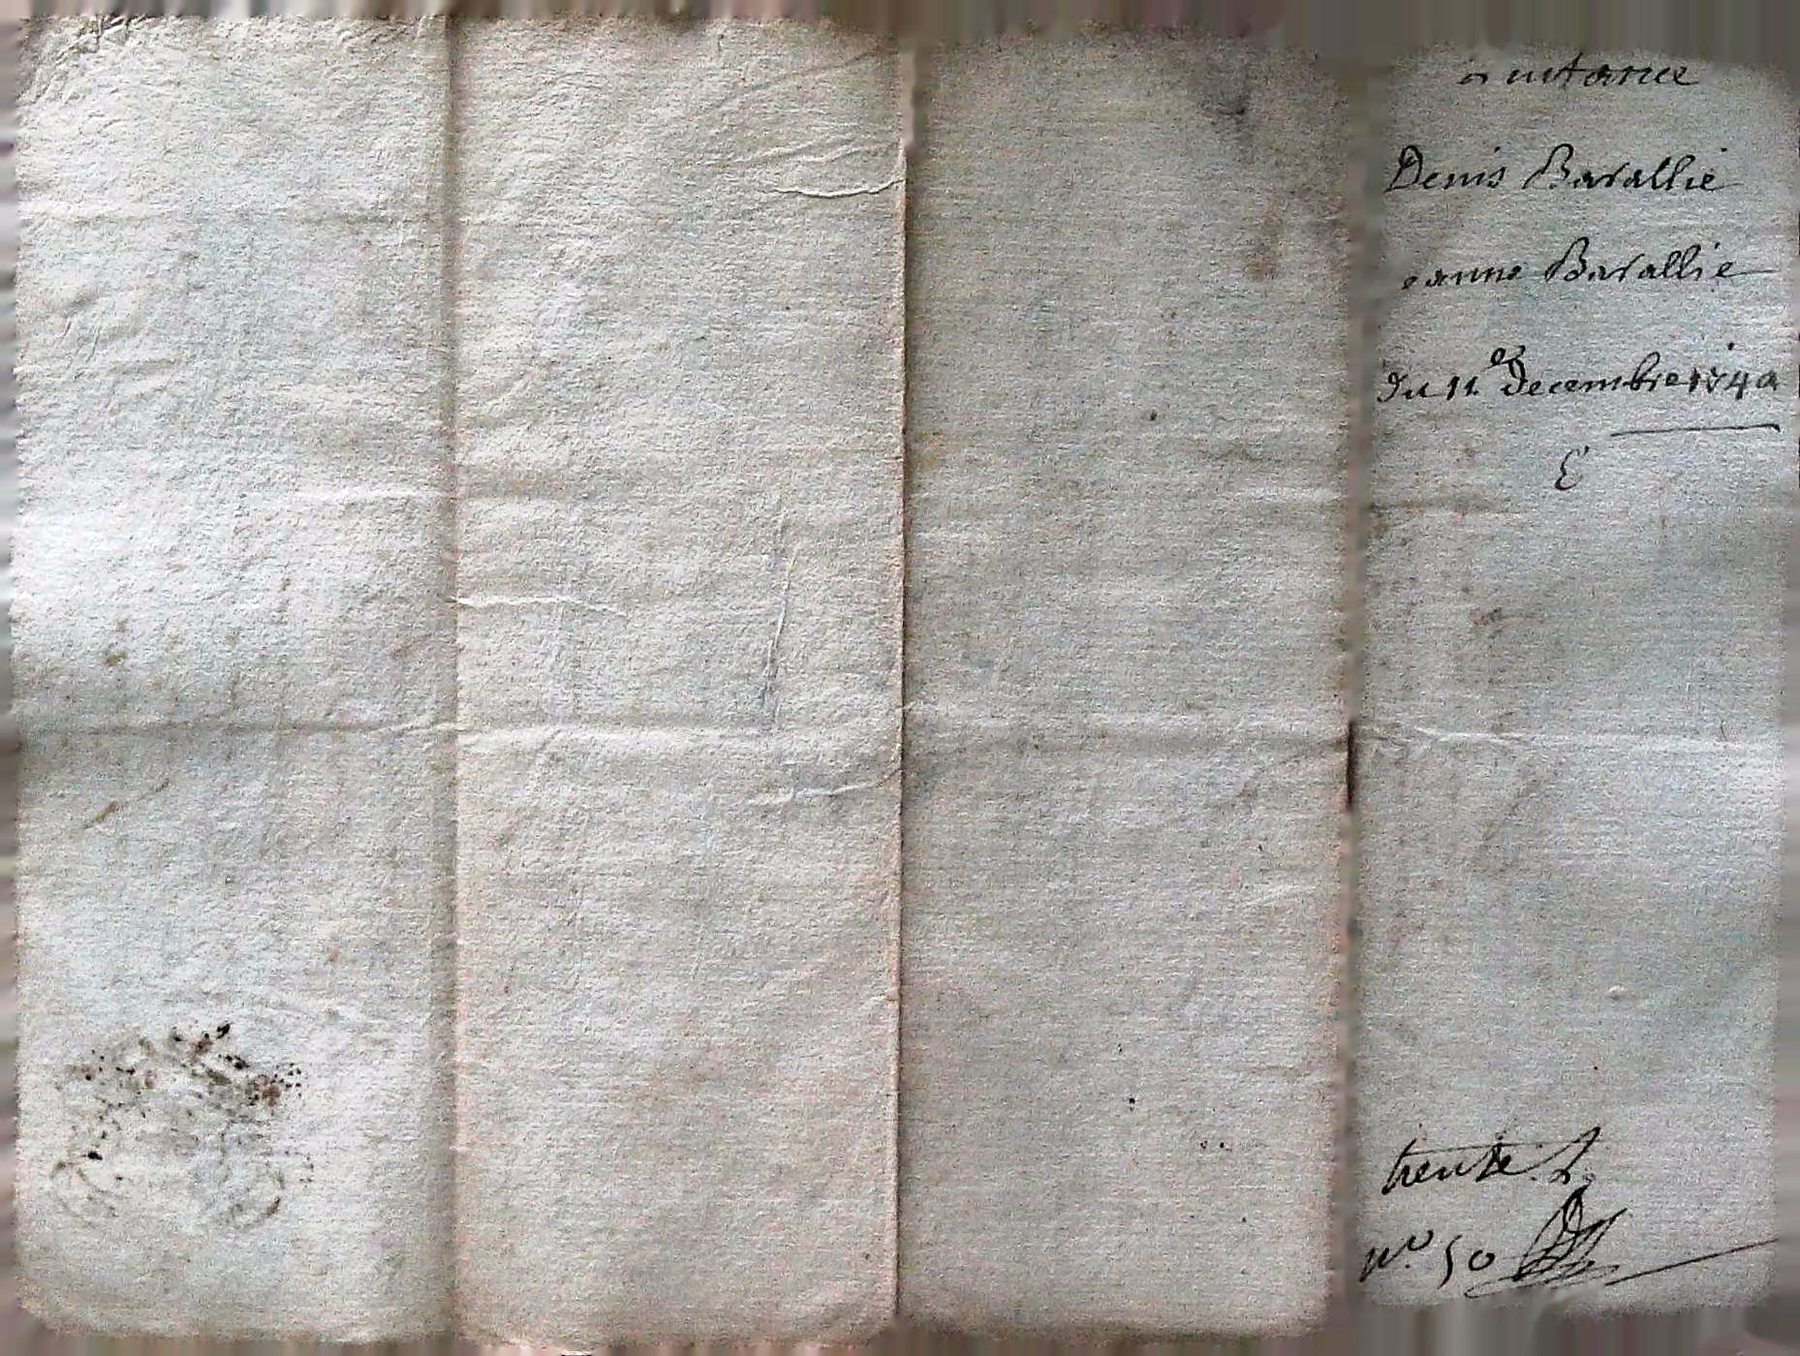 uittance
Denis Barallie
eanne Barallie
Du 11 Decembre 1740
trente
n.º 50